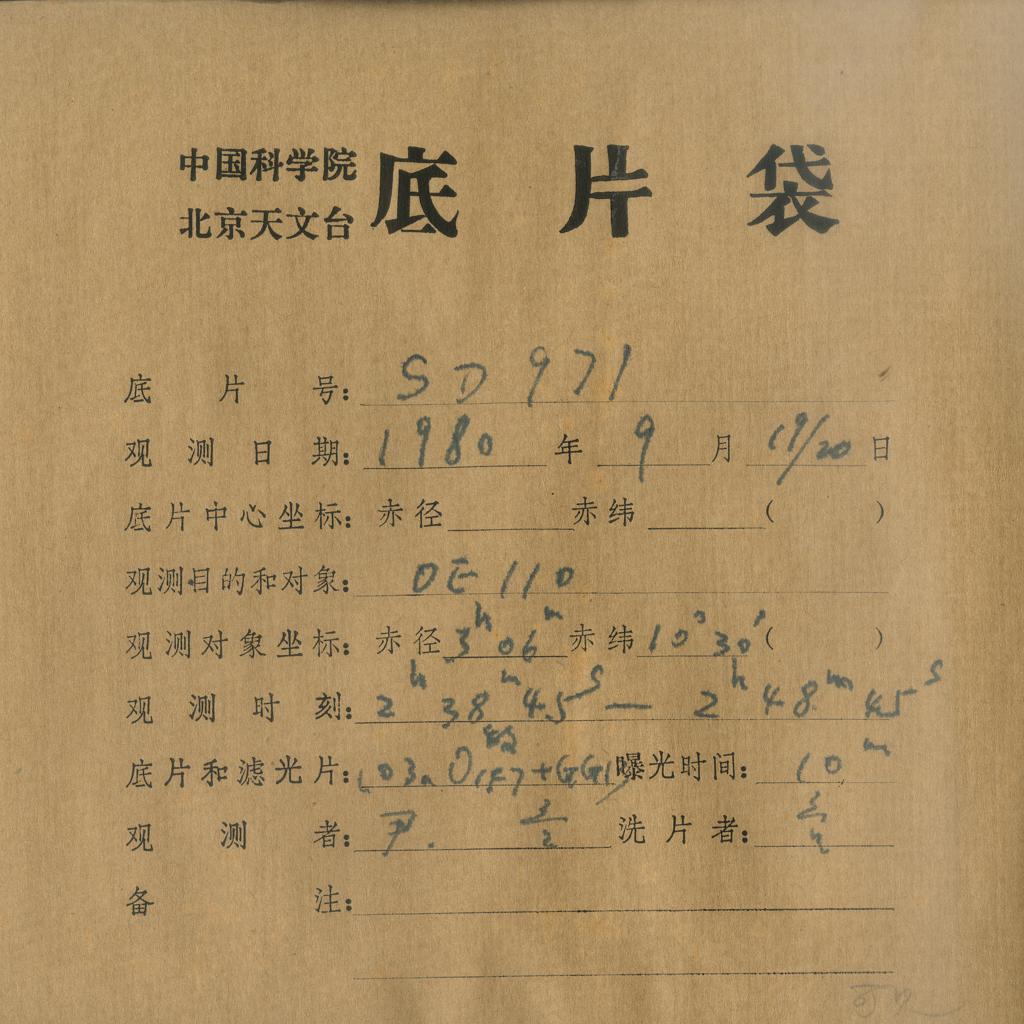 中国科学院
北京天文台
底片袋
底片号: SD971
观测日期: 1980年9月19/20日
底片中心坐标: 赤径 赤纬 ( )
观测目的和对象: OE110
观测对象坐标: 赤径3ʰ06ᵐ赤纬10°30′( )
观测时刻: 2ʰ38ᵐ45ˢ—2ʰ48ᵐ45ˢ
底片和滤光片: 曝光时间: 10ᵐ
观测者: 尹. 洗片者:
备注: